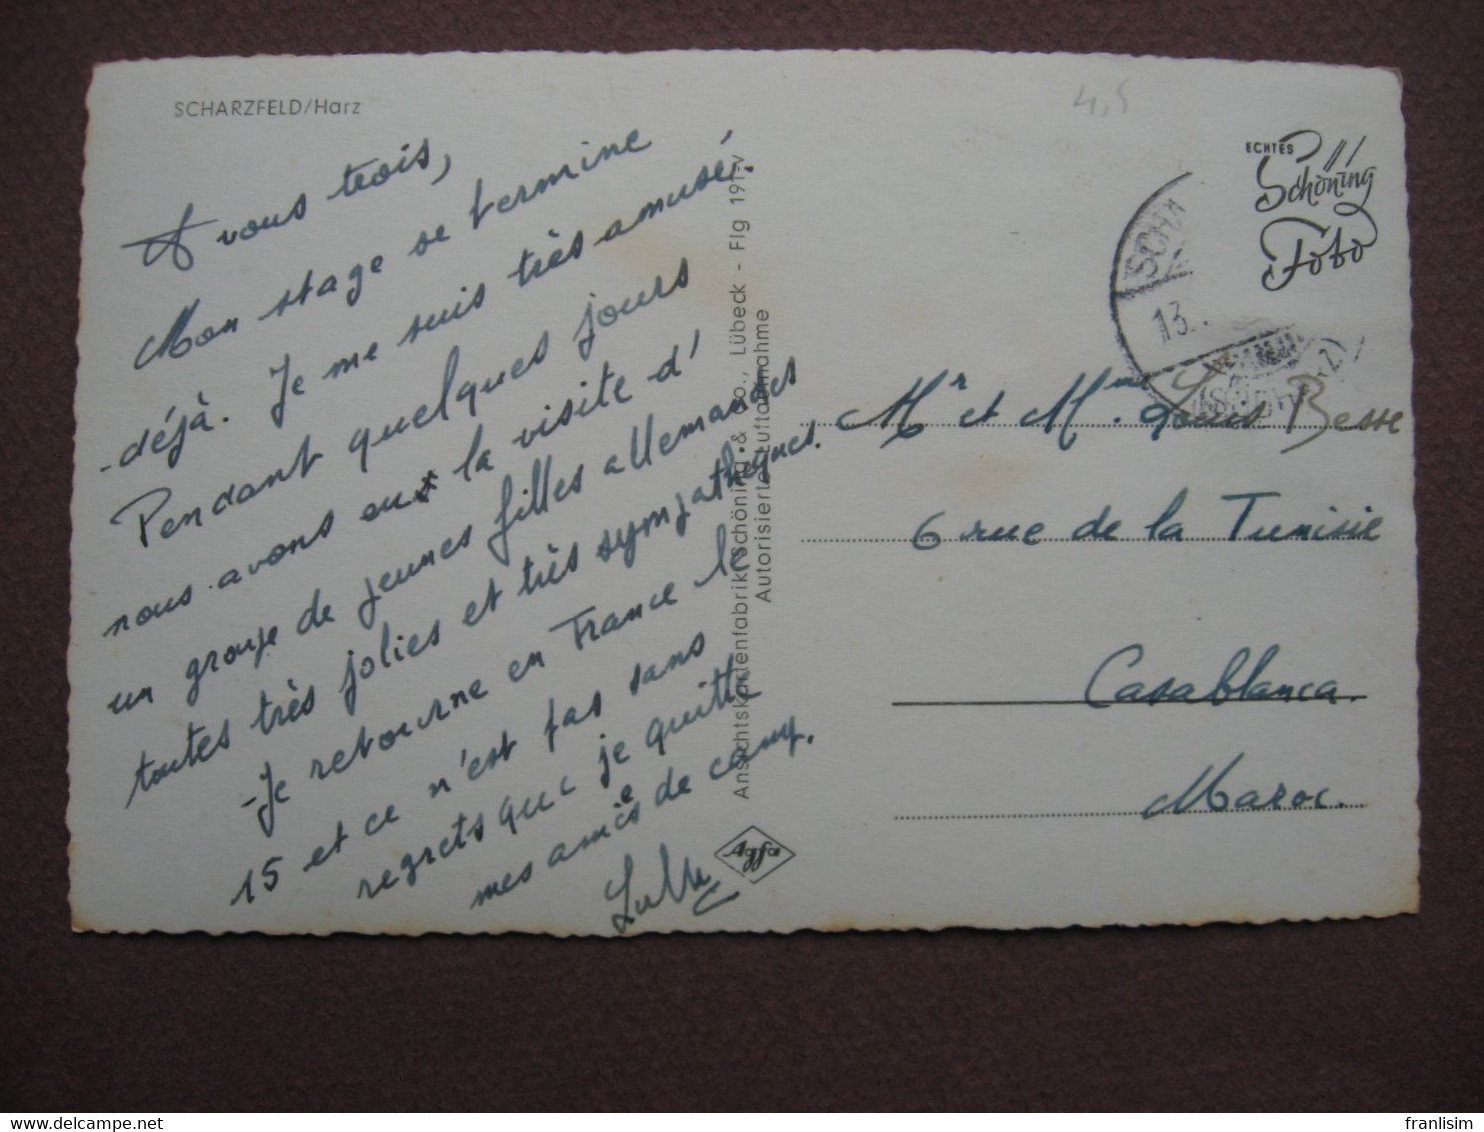 SCHARZFELD/Harz
A vous trois,
Mon stage se termine
déjà. Je me suis très amusé.
Pendant quelques jours
nous avons eu la visite d'
un groupe de jeunes filles allemandes
toutes très jolies et très sympathiques.
-Je retourne en France le
15 et ce n'est pas sans
regrets que je quitte
mes amies de camp.
Ansichtskartenfabrik Schöning & Co., Lübeck - Flg 191-v
Autorisierte Luftaufnahme
Agfa
4,5
ECHTES
Schöning
Foto
SCHA
13.
Mr et Mme. Louis Besse
6 rue de la Tunisie
Casablanca.
Maroc.
franlisim
www.delcampe.net